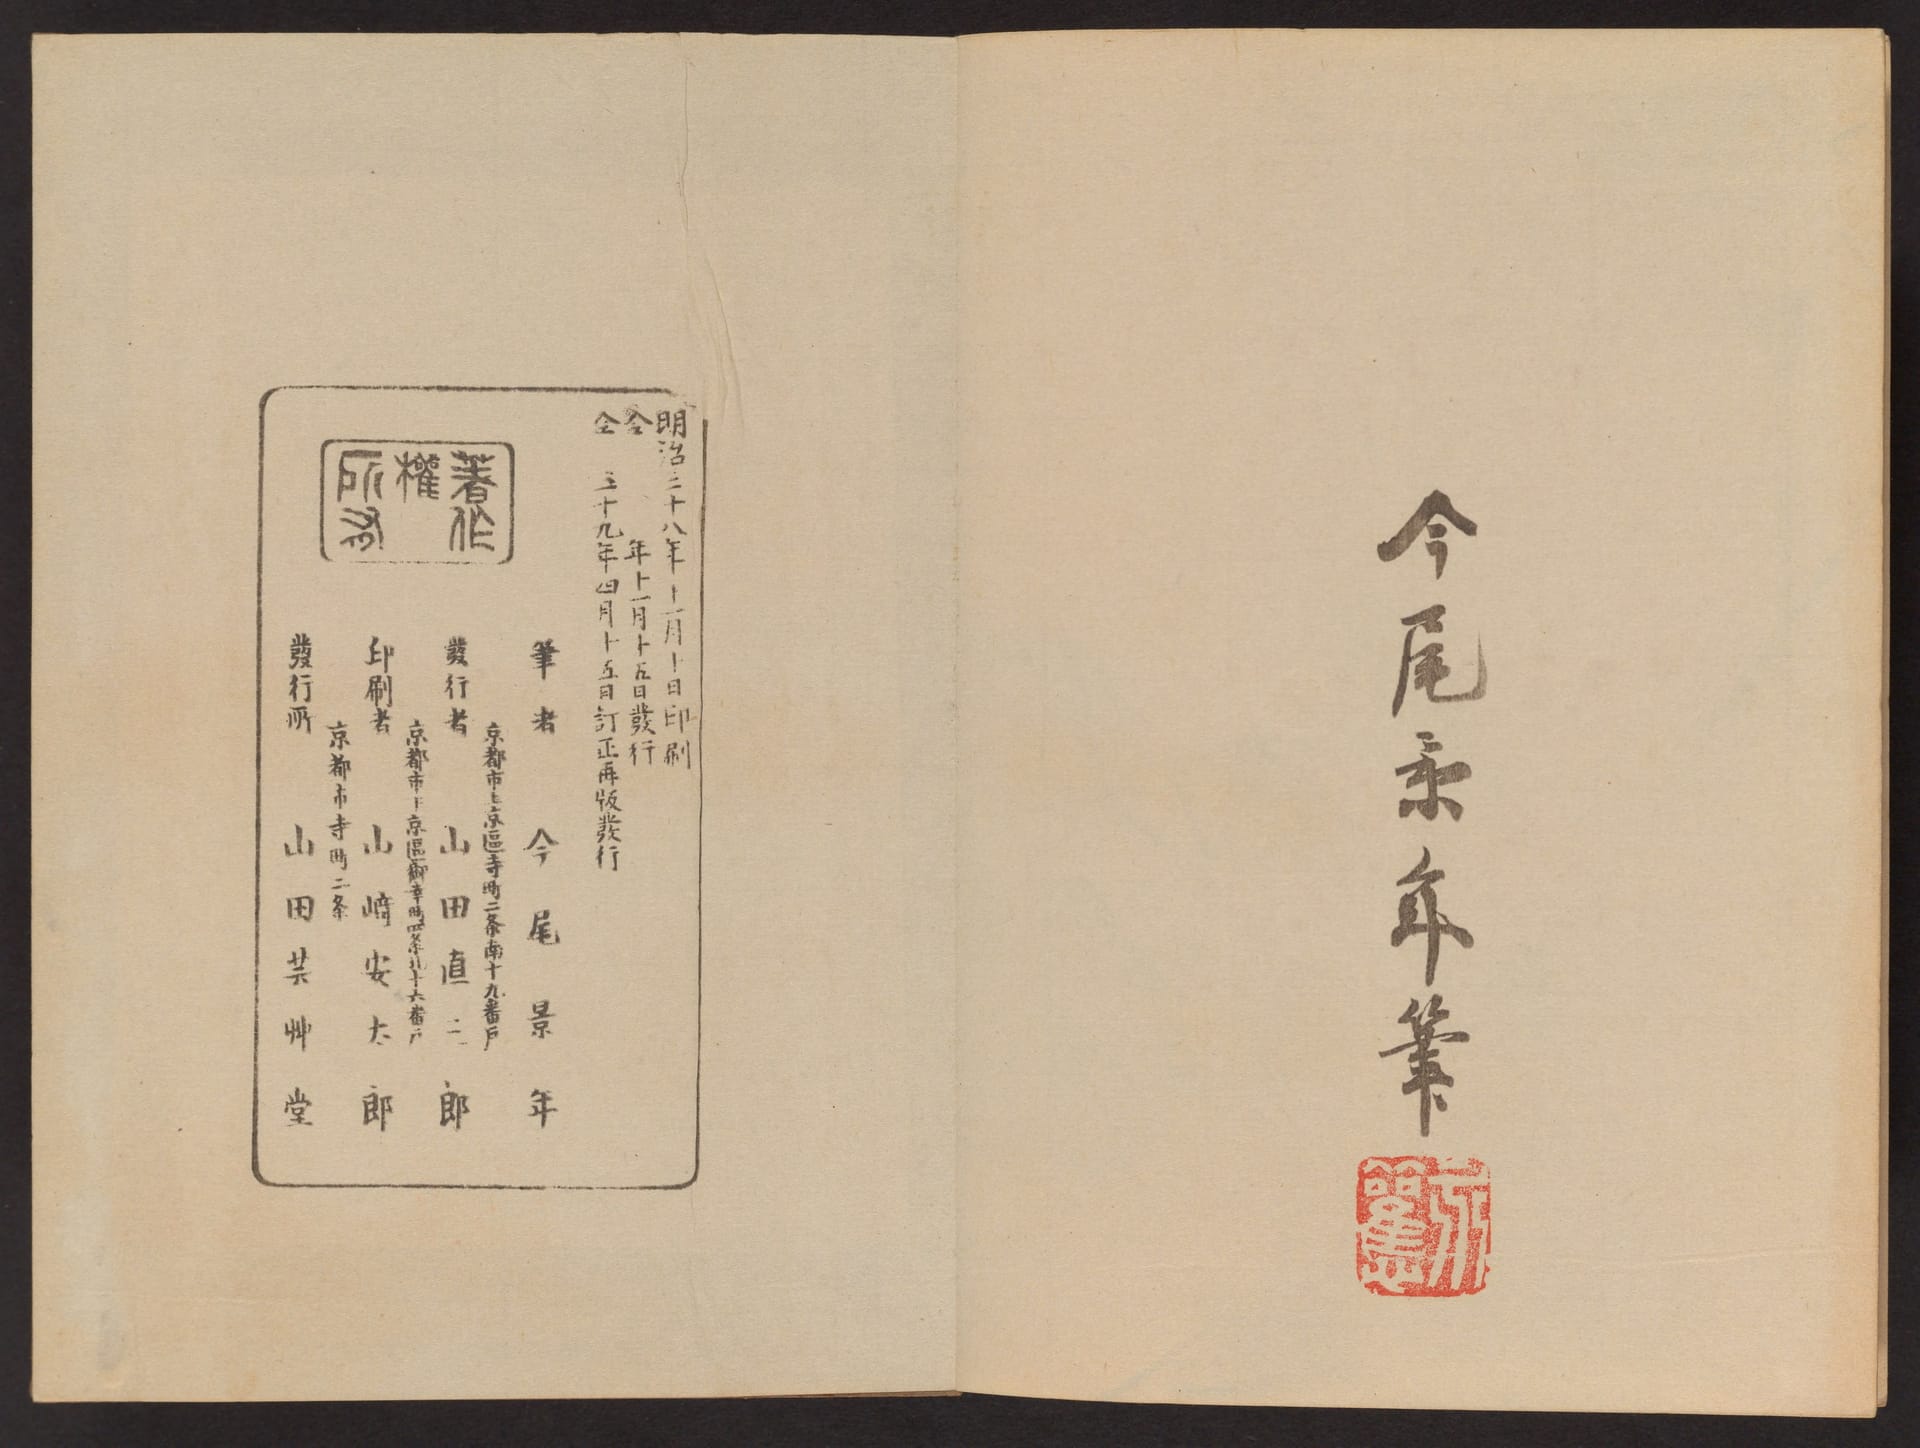 今尾景年筆
明治三十八年十一月十日印刷
仝 年十一月十五日發行
仝 三十九年四月十五日訂正再版發行
筆者 今尾景年
京都市上京區寺町二条南十九番戸
發行者 山田直三郎
京都市下京區御幸町四条北十六番戸
印刷者 山崎安太郎
京都市寺町二条
發行所 山田芸艸堂
著作
權
所有